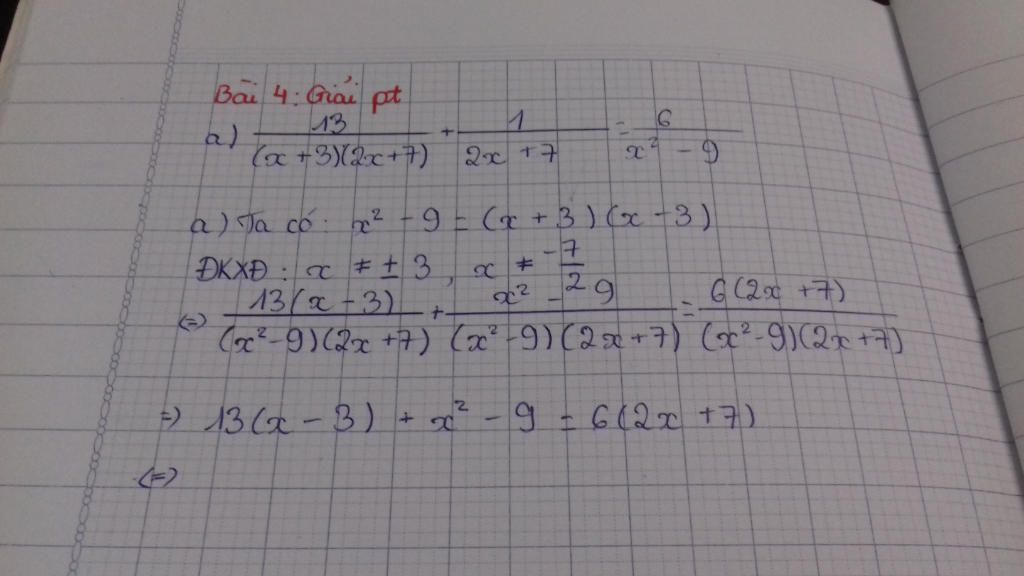 Bài 4: Giải pt
a) 13/((x+3)(2x+7)) + 1/(2x+7) = 6/(x² - 9)
a) Ta có: x² - 9 = (x + 3)(x - 3)
ĐKXĐ: x ≠ ± 3, x ≠ -7/2
<=> 13(x - 3)/((x²-9)(2x+7)) + (x² - 9)/((x²-9)(2x+7)) = 6(2x +7)/((x²-9)(2x+7))
=> 13(x - 3) + x² - 9 = 6(2x +7)
<=>